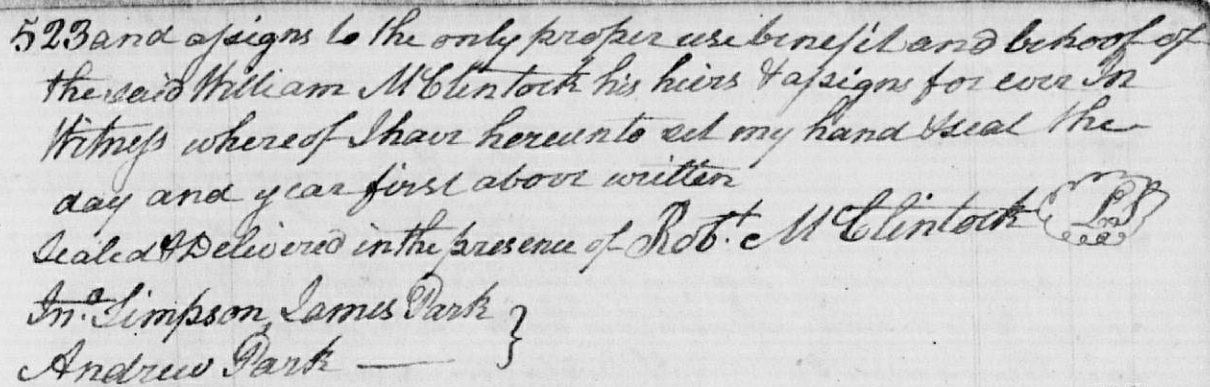 523 and assigns to the only proper use benefit and behoof of
the said William McClintock his heirs & assigns for ever In
Witness whereof I have hereunto set my hand & seal the
day and year first above written
Sealed & Delivered in the presence of Robt. McClintock LS
Jno. Simpson James Park
Andrew Park —